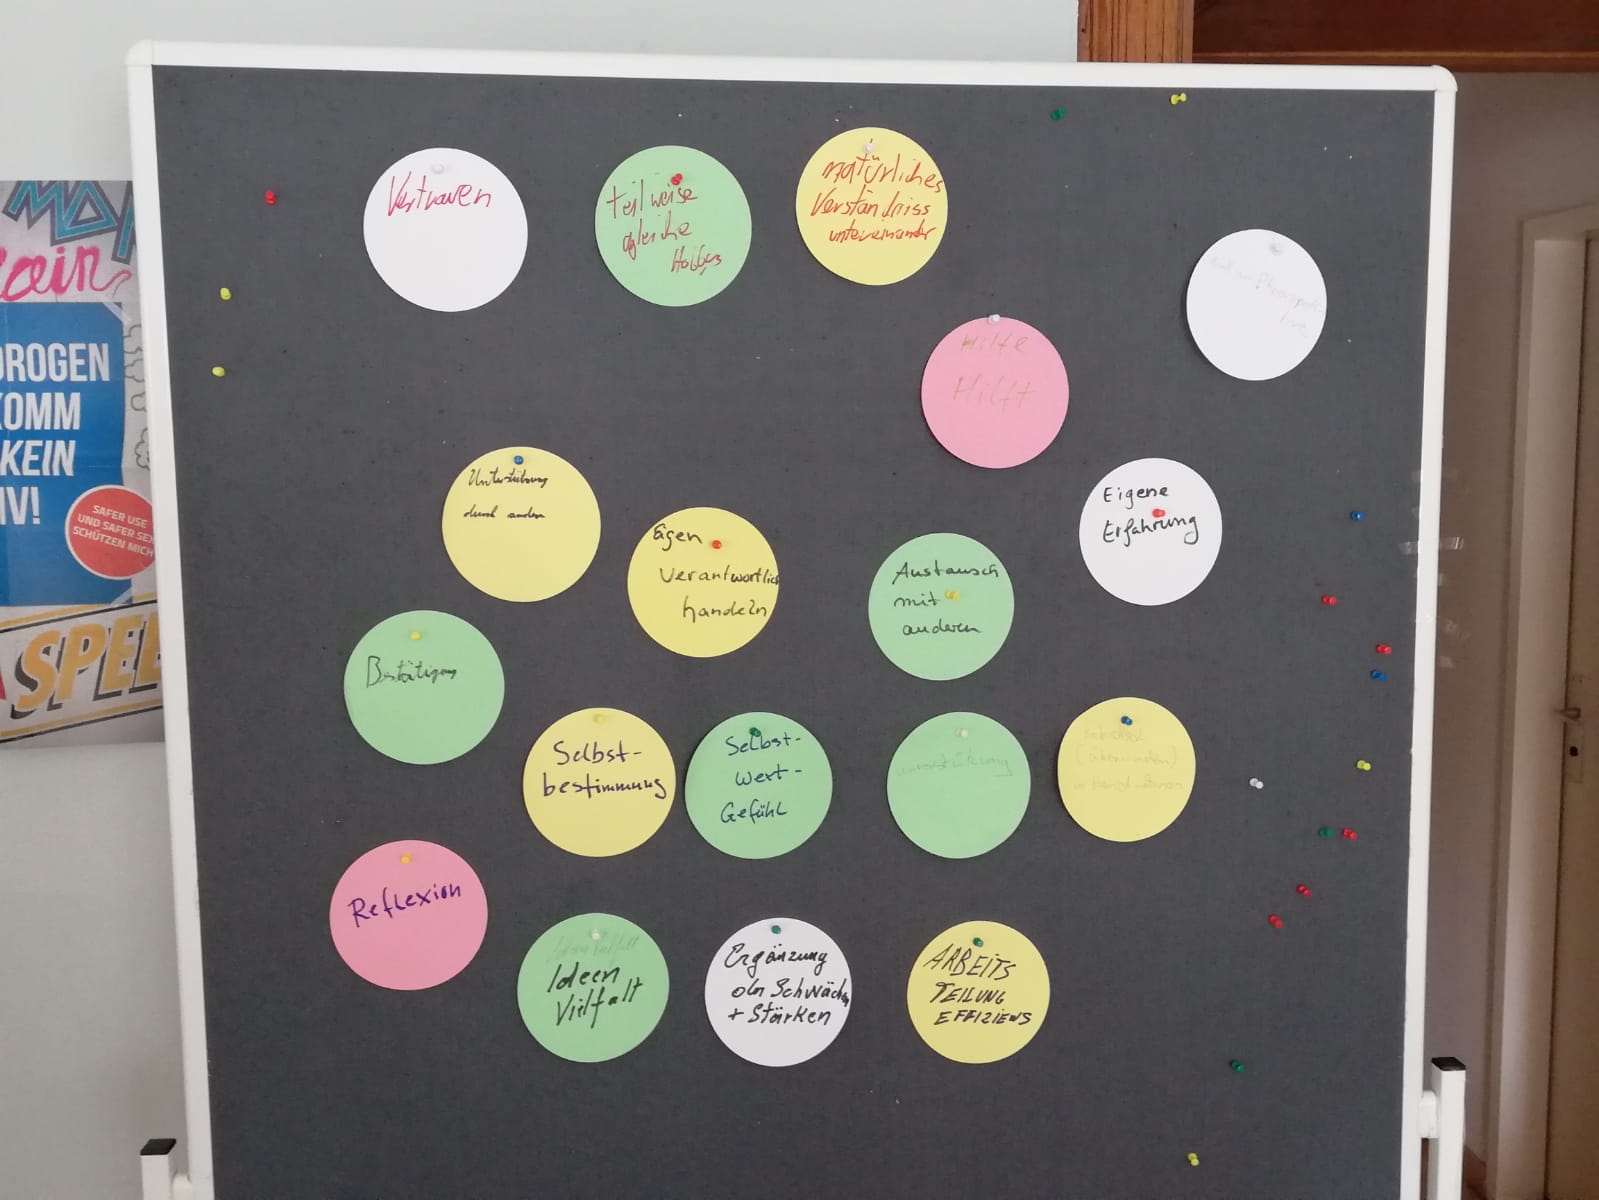 Vertrauen
teilweise
gleiche
Hobbys
natürliches
Verständniss
untereinander
Hilfe
Hilft
Unterstützung
durch andere
Eigene
Erfahrung
Eigen
Verantwortlich
handeln
Austausch
mit
anderen
Bestätigung
Selbst-
bestimmung
Selbst-
wert-
Gefühl
unterstützung
Schicksal
(überwinden)
Reflexion
Ideenvielfalt
Ideen
Vielfalt
Ergänzung
der Schwächen
+ Stärken
ARBEITS
TEILUNG
EFFIZIENS
DROGEN
KOMM
KEIN
IV!
SAFER USE
UND SAFER SEX
SCHÜTZEN MICH
SPEE